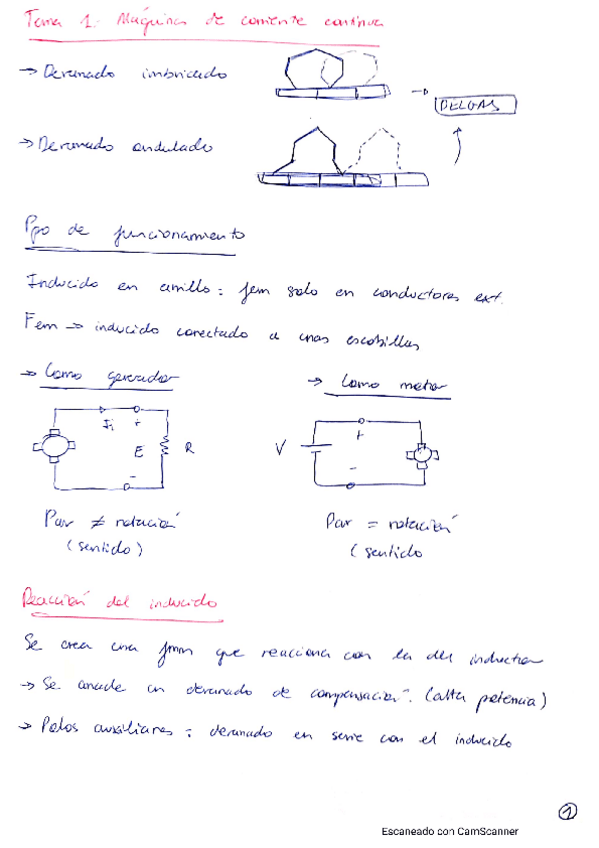 Tema 1: Máquinas de corriente continua
→ Devanado imbricado
→ DELGAS
→ Devanado ondulado
Ppo de funcionamiento
Inducido en anillo: fem solo en conductores ext.
Fem → inducido conectado a unas escobillas
→ Como generador
→ Como motor
Ii + E - R
V + -
Par ≠ rotación
(sentido)
Par = rotación
(sentido
Reacción del inducido
Se crea una fmm que reacciona con la del inductor
→ Se añade un devanado de compensación. (alta potencia)
→ Polos auxiliares: devanado en serie con el inducido
1
Escaneado con CamScanner